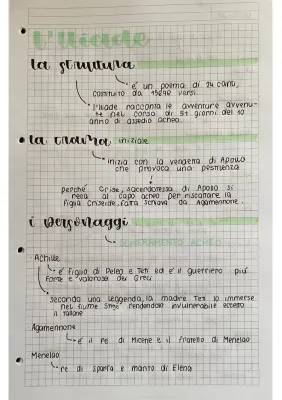 L'Iliade
la struttura
è un poema di 24 canti,
costituito da 15696 versi.
l'Iliade racconta le avventure avvenu-
te nel corso di 51 giorni del 10
anno di assedio acheo.
la trama iniziale
inizia con la vendetta di Apollo
che provoca una pestilenza
perché Crise, sacerdotessa di Apollo si
reca al capo acheo per riscattare la
figlia Criseide, fatta schiava da Agamennone.
i personaggi
SCHIERAMENTO ACHEO
Achille
è figlio di Peleo e Teti ed e' il guerriero piu'
forte e valoroso dei Greci
secondo una leggenda, la madre Teti lo immerse
nel fiume Stige rendendolo invulnerabile eccetto
il tallone
Agamennone
è il re di Micene e il fratello di Menelao
Menelao
re di Sparta e marito di Elena